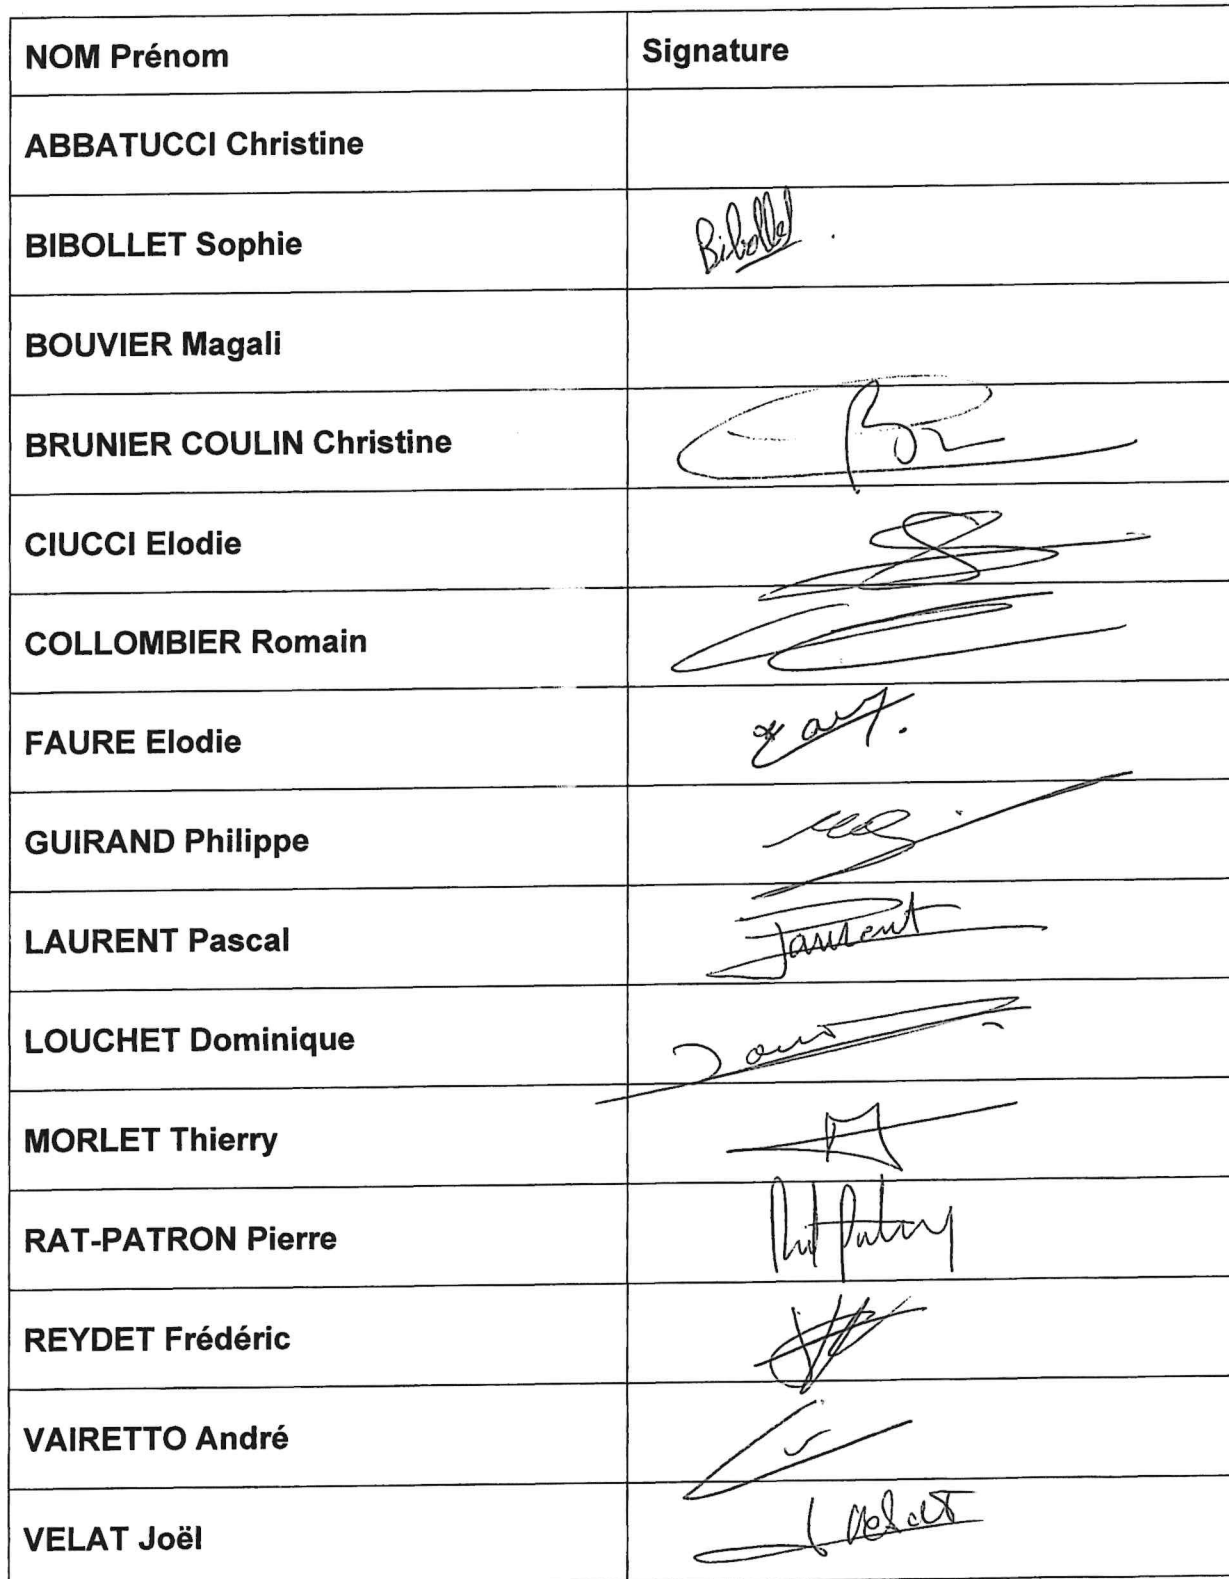 NOM Prénom Signature
ABBATUCCI Christine
BIBOLLET Sophie Bibollet
BOUVIER Magali
BRUNIER COULIN Christine
CIUCCI Elodie
COLLOMBIER Romain
FAURE Elodie
GUIRAND Philippe
LAURENT Pascal Laurent
LOUCHET Dominique
MORLET Thierry
RAT-PATRON Pierre
REYDET Frédéric
VAIRETTO André
VELAT Joël